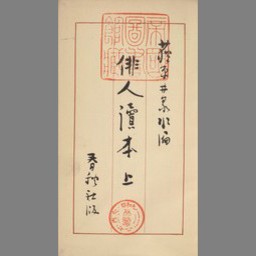 荻原井泉水編
俳人讀本 上
春秋社版